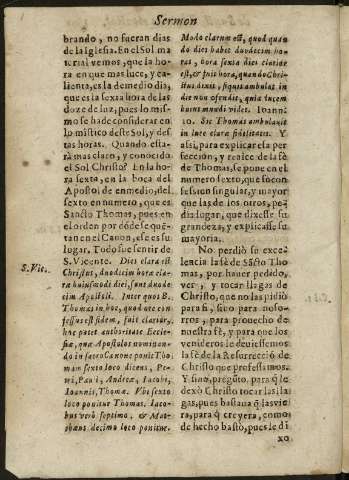 Sermon
brando, no fueran dias
de la Iglesia. En el Sol ma
terial vemos, que la ho
ra en que mas luce, y ca
lienta, es la de medio dia,
que es la sexta hora de las
doze de luz; pues lo mis
mo se ha de considerar en
lo mistico deste Sol, y des
tas horas. Quando esta-
rà mas claro, y conocido
el Sol Christo? En la ho
ra sexta, en la boca del
Apostol de enmedio, del
sexto en numero, que es
Sancto Thomas, pues en
el orden por dõde se quẽ-
tan en el Canon, ese es su
lugar, Todo fue sentir de
S. Vicente. Dies clara est
Christus, duodecim hora cla-
ra huiusmodi diei, sunt duode
cim Apostoli. Inter quos B.
Thomas in hoc, quod ore con
fessus est fidem, fuit clarior,
hoc patet authoritate Eccle-
siæ, quæ Apostolos nominan-
do in sacro Canone ponit Tho
mam sexto loco dicens, Pe-
tri, Pauli, Andreæ, Iacobi,
Ioannis, Thomæ. Vbi sexto
loco ponitur Thomas. Iaco-
bus verò septimo, & Mat-
thæus decimo loco ponitur.
S. Vic.
Modo clarum est, quod quan
do dies habet duodecim ho-
ras, hora sexta dies claride
est, & huic hora, quando Chri-
stus dixit, si quis ambulat in
die non ofendit, quia lucem
huius mundi videt. Ioann;
10. Sic Thomas ambulauit
in luce clara fidelitatis. Y
assi, para explicar la per
feccion, y realce de la fè
de Thomas, se pone en el
numero sexto, que su con
fession singular, y mayor
que las de los otros, pedia
lugar, que dixesse su
grandeza, y explicasse su
mayoria.
No perdiò su exce-
lencia la fè de Sãcto Tho
mas, por hauer pedido,
ver, y tocar llagas de
Christo, que no las pidiò
para si, sino para noso-
tros, para prouecho de
nuestra fè, y para que los
venideros le deuiessemos
la fè de la Resurrecciõ de
Christo que professamos.
Y sino, pregũto, para q̃ le
dexò Christo tocar las lla
gas, pues bastaua q̃ las vie
ra, para q̃ creyera, como
de hecho bastò, pues le di
xo